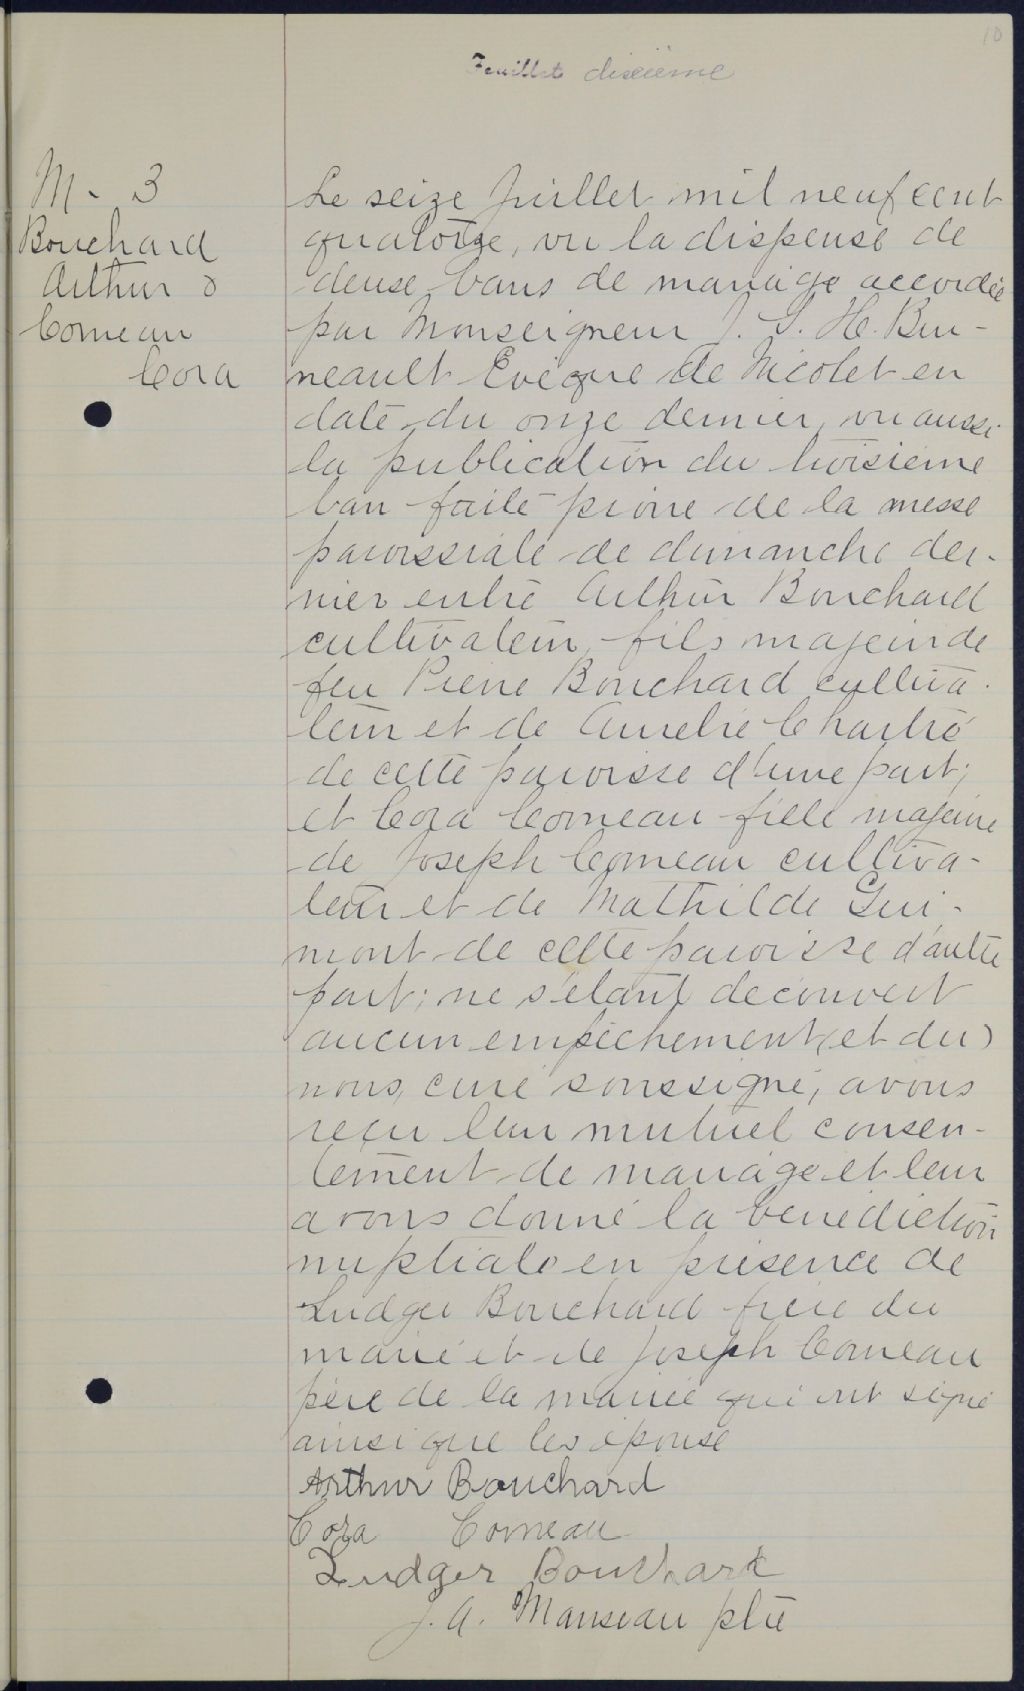 10
Feuillet dixième
M - 3
Bouchard
Arthur &
Comeau
Cora
Le seize Juillet mil neuf cent
quatorze, vu la dispense de
deux bans de mariage accordée
par Monseigneur J. S. H. Bru-
neault Evêque de Nicolet en
date du onze dernier, vu aussi
la publication du troisième
ban faite prône de la messe
paroissiale de dimanche der-
nier entre Arthur Bouchard
cultivateur, fils majeur de
feu Pierre Bouchard cultiva-
teur et de Amélie Chartré
de cette paroisse d'une part;
et Cora Comeau fille majeure
de Joseph Comeau cultiva-
teur et de Mathilde Gui-
mont de cette paroisse d'autre
part; ne s'étant découvert
aucun empêchement (et du)
nous, curé soussigné, avons
reçu leur mutuel consen-
tement de mariage et leur
avons donné la bénédiction
nuptiale en présence de
Ludger Bouchard frère du
marié et de Joseph Comeau
père de la mariée qui ont signé
ainsi que les épouse
Arthur Bouchard
Cora Comeau
Ludger Bouchard
J. A. Manseau ptre